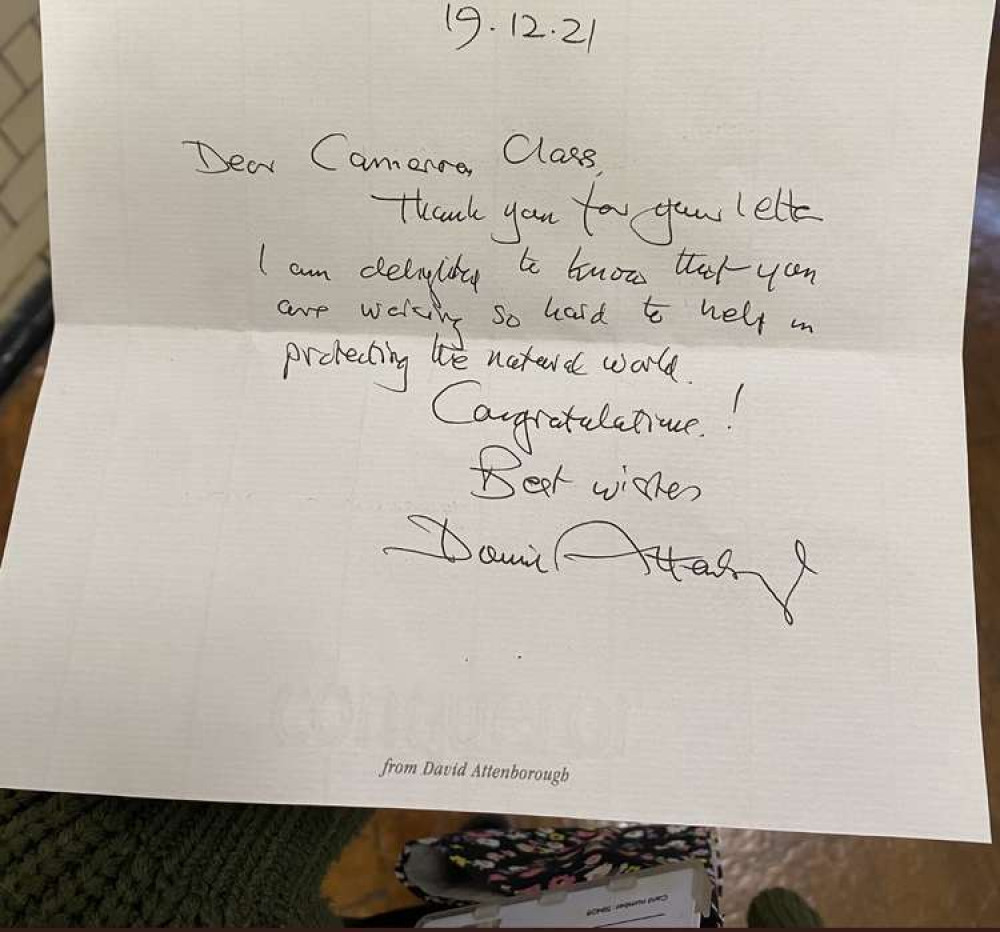 19.12.21
Dear Cameron Class,
Thank you for your letter
I am delighted to know that you
are working so hard to help in
protecting the natural world.
Congratulations!
Best wishes
David Attenborough
from David Attenborough
Card number